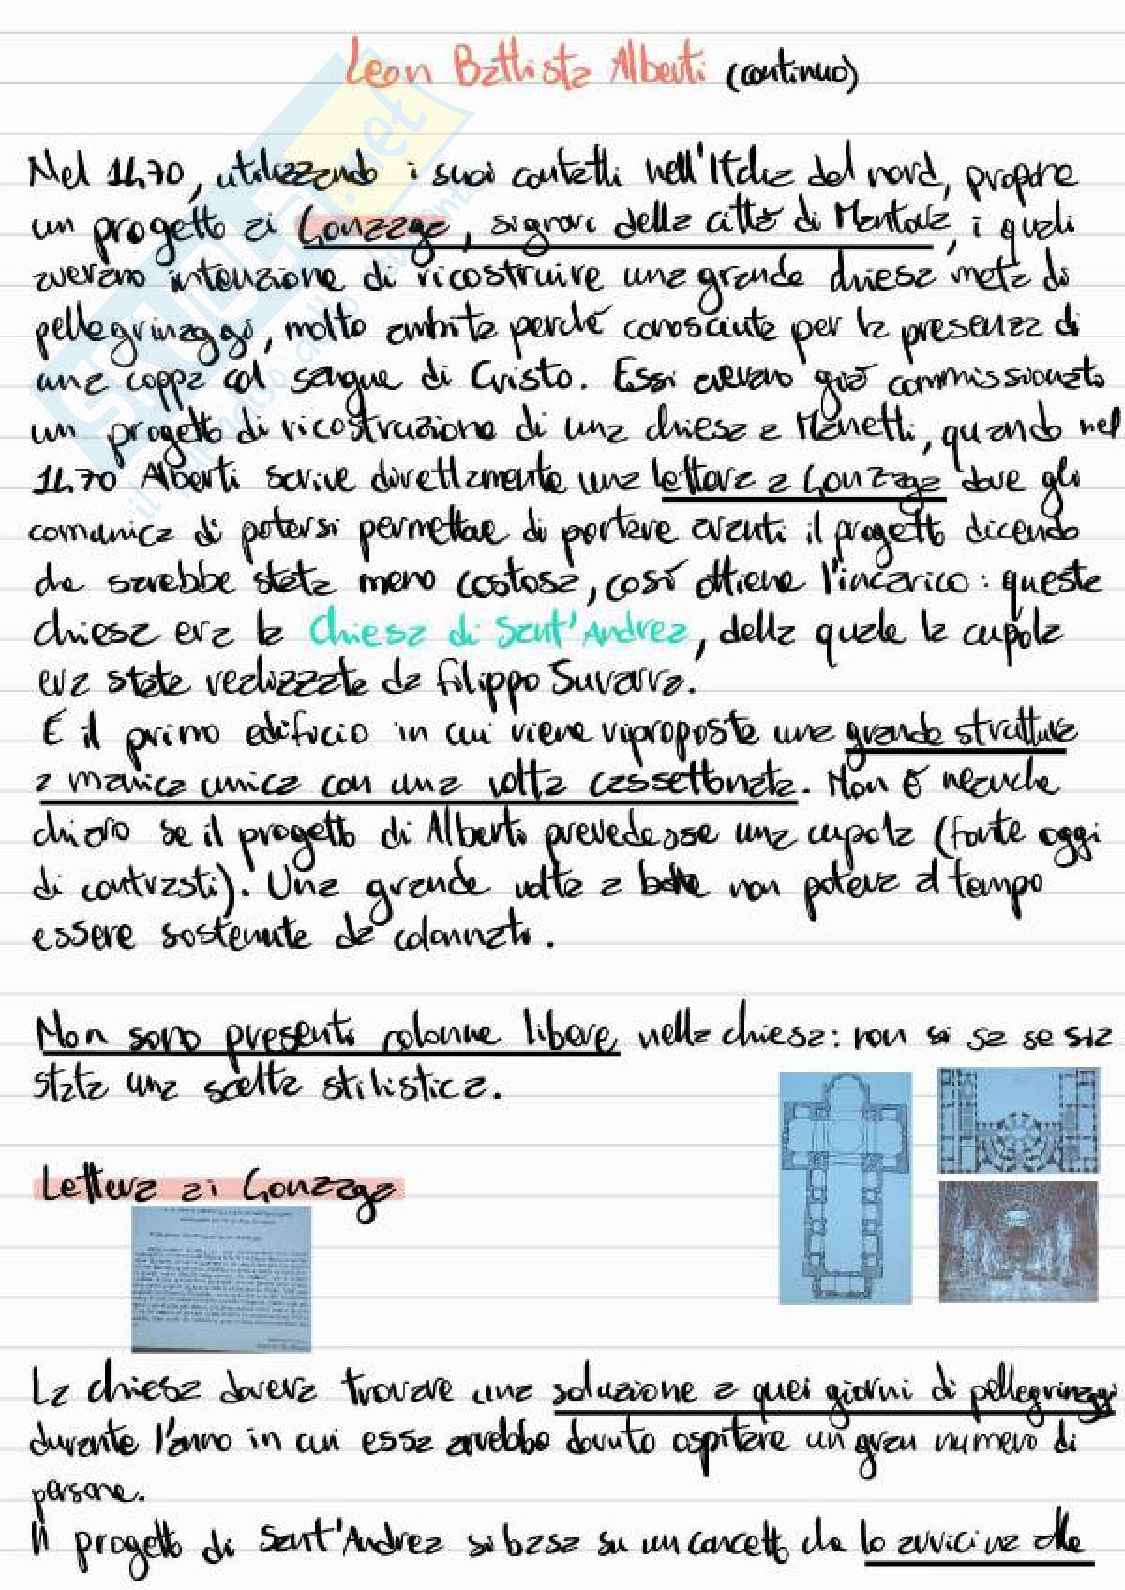 Leon Battista Alberti (continuo)
Nel 1470, utilizzando i suoi contatti nell'Italia del nord, propone
un progetto ai Gonzaga, signori della città di Mantova, i quali
avevano intenzione di ricostruire una grande chiesa meta di
pellegrinaggi, molto ambita perché conosciuta per la presenza di
una coppa col sangue di Cristo. Essi avevano già commissionato
un progetto di ricostruzione di una chiesa a Manetti, quando nel
1470 Alberti scrive direttamente una lettera a Gonzaga dove gli
comunica di potersi permettere di portare avanti il progetto dicendo
che sarebbe stata meno costosa, così ottiene l'incarico: questa
chiesa era la Chiesa di Sant'Andrea, della quale la cupola
era stata realizzata da Filippo Suvarra.
È il primo edificio in cui viene riproposta una grande struttura
a manica unica con una volta cassettonata. Non è neanche
chiaro se il progetto di Alberti prevedesse una cupola (fonte oggi
di contrasti). Una grande volta a botte non poteva al tempo
essere sostenuta da colonnati.
Non sono presenti colonne libere nella chiesa: non si sa se sia
stata una scelta stilistica.
Lettera ai Gonzaga
La chiesa doveva trovare una soluzione a quei giorni di pellegrinaggi
durante l'anno in cui essa avrebbe dovuto ospitare un gran numero di
persone.
Il progetto di Sant'Andrea si basa su un concetto che lo avvicina alle